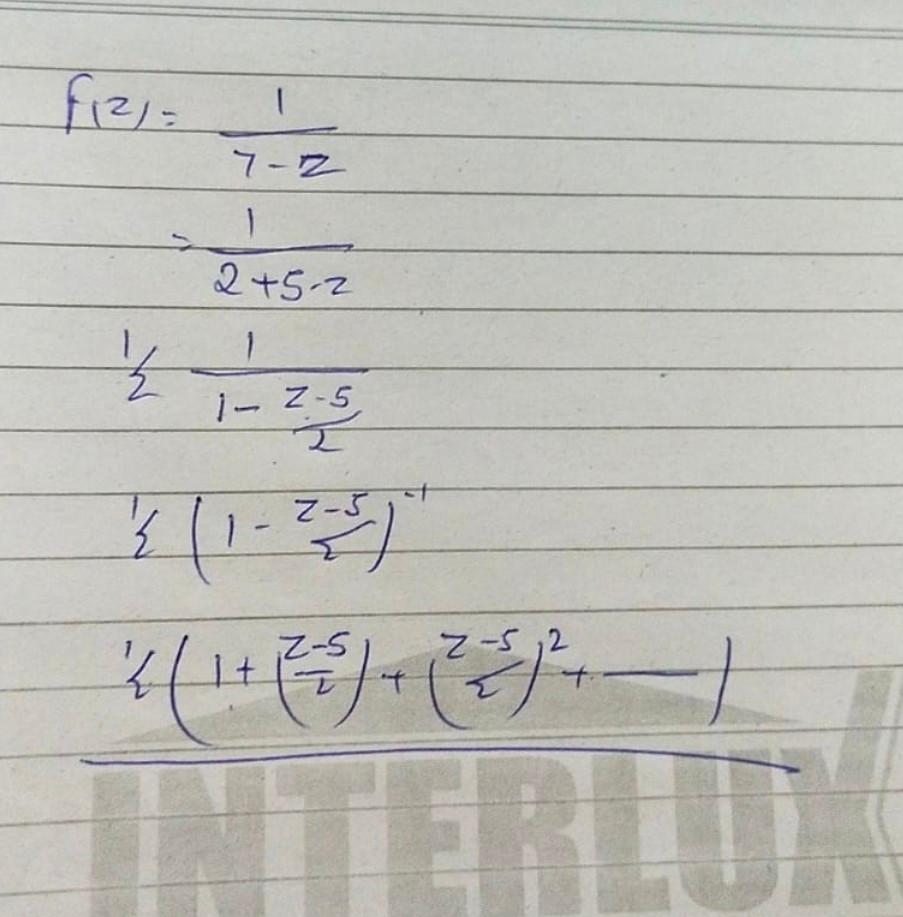 f(z) = 1/(7-z)
= 1/(2+5-z)
1/2 1/(1-(z-5)/2)
1/2 (1 - (z-5)/2)^-1
1/2 (1 + ((z-5)/2) + ((z-5)/2)^2 + —)
INTERLUX